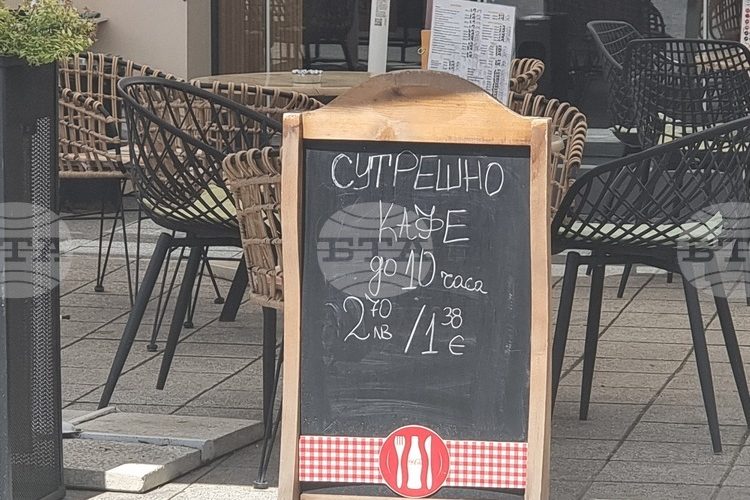 СУТРЕШНО
КАФЕ
до 10 часа
2 70 лв / 1 38 €
БТА
БТА
БТА